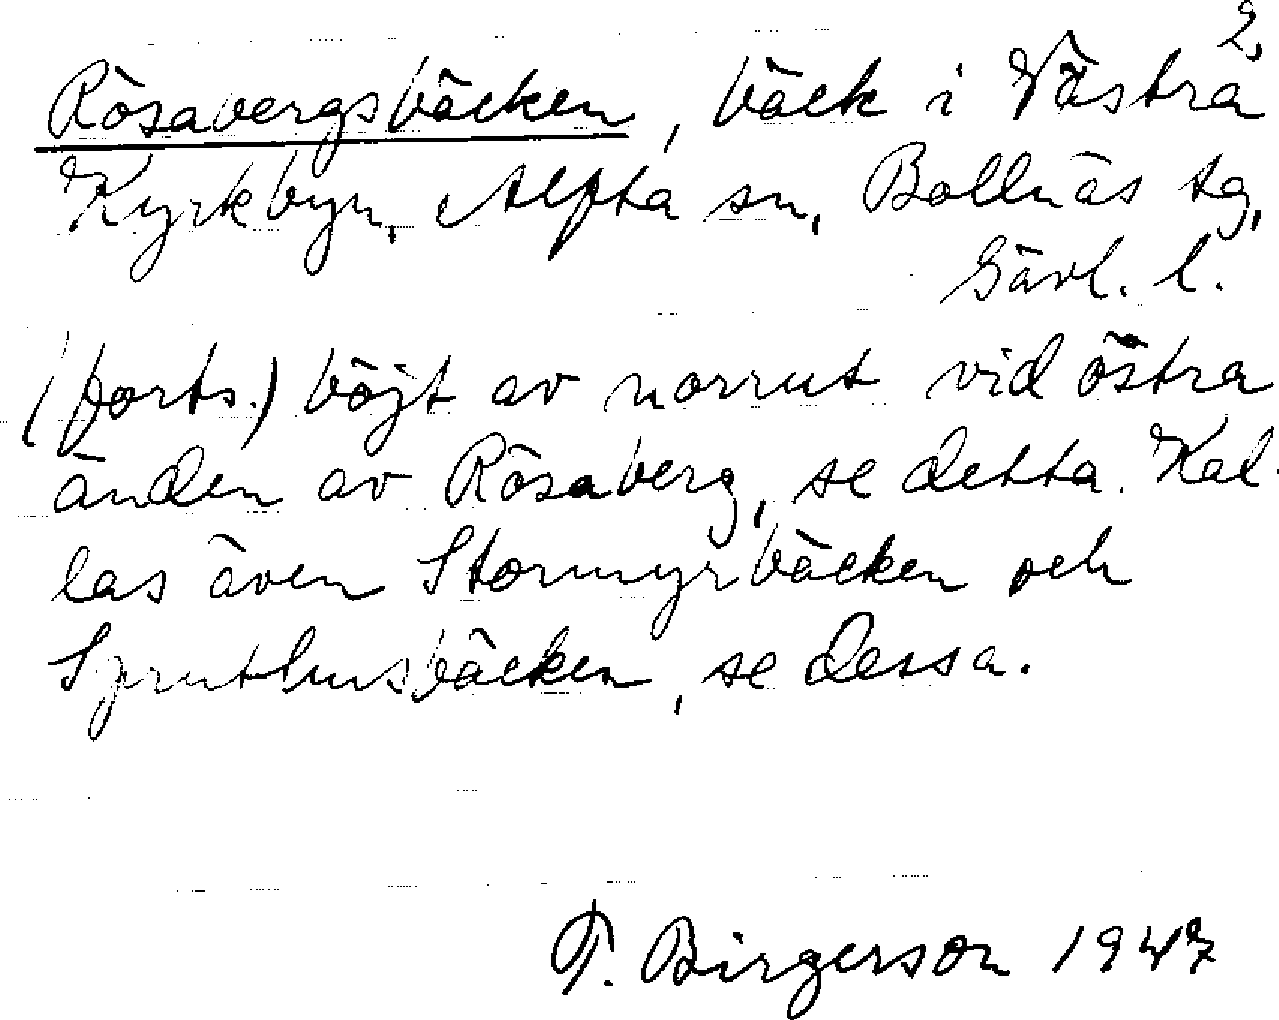 2,
Rösabergsbäcken, bäck i Västra
Kyrkbyn, Alfta sn, Bollnäs tg,
Gävl. l.
(forts.) böjt av norrut vid östra
änden av Rösaberg, se detta. Kal-
las även Stormyrbäcken och
Spruthusbäcken, se dessa.
F. Birgerson 1947